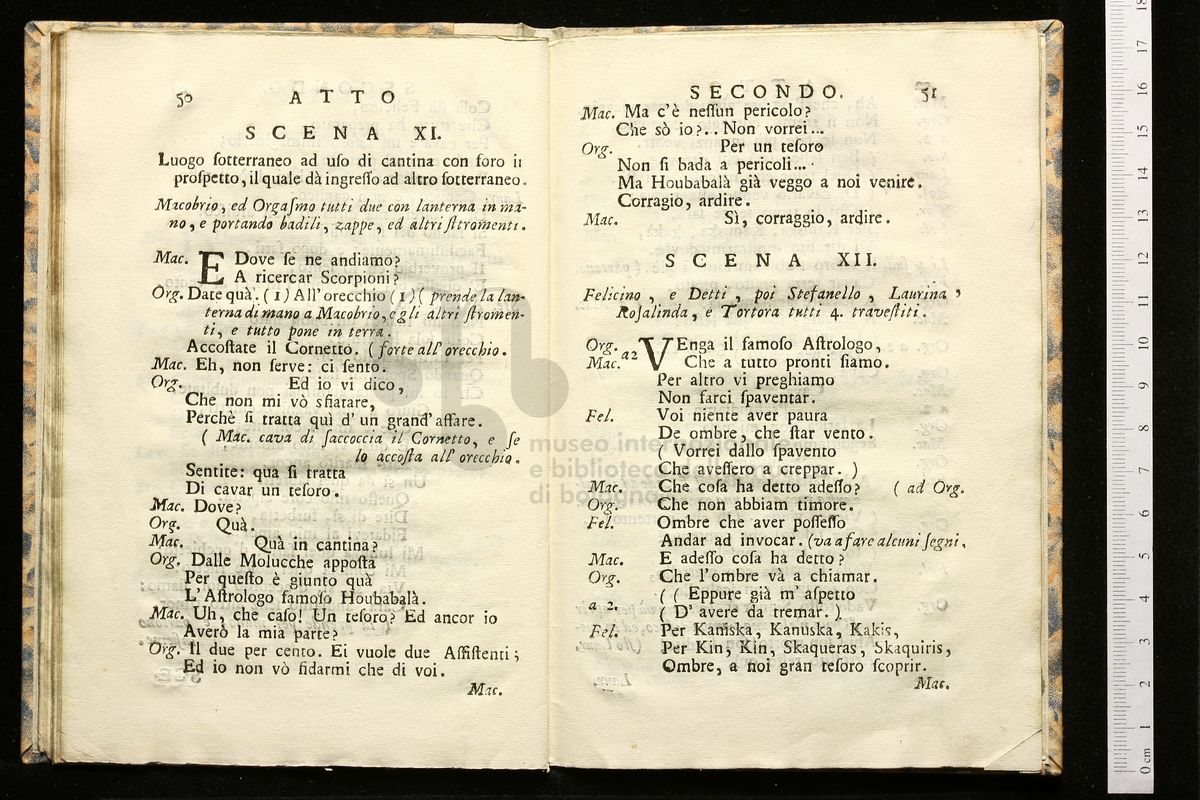 50 ATTO
SCENA XI.
Luogo ſotterraneo ad uſo di cantina con foro in
proſpetto, il quale dà ingreſſo ad altro ſotterraneo.
Macobrio, ed Orgaſmo tutti due con lanterna in ma-
no, e portando badili, zappe, ed altri ſtromenti.
Mac. E Dove ſe ne andiamo?
A ricercar Scorpioni?
Org. Date quà. (1) All' orecchio (1) (prende la lan-
terna di mano a Macobrio, e gli altri ſtromen-
ti, e tutto pone in terra.
Accoſtate il Cornetto. (forte all' orecchio.
Mac. Eh, non ſerve: ci ſento.
Org. Ed io vi dico,
Che non mi vò sfiatare,
Perchè ſi tratta quì d' un grand' affare.
( Mac. cava di ſaccoccia il Cornetto, e ſe
lo accoſta all' orecchio.
Sentite: qua ſi tratta
Di cavar un teſoro.
Mac. Dove?
Org. Quà.
Mac. Quà in cantina?
Org. Dalle Molucche appoſta
Per queſto è giunto quà
L' Aſtrologo famoſo Houbabalà.
Mac. Uh, che caſo! Un teſoro? Ed ancor io
Averò la mia parte?
Org. Il due per cento. Ei vuole due Aſſiſtenti;
Ed io non vò fidarmi che di voi.
Mac.
SECONDO. 51
Mac. Ma c'è neſſun pericolo?
Che sò io?.. Non vorrei...
Org. Per un teſoro
Non ſi bada a pericoli...
Ma Houbabalà già veggo a noi venire.
Corragio, ardire.
Mac. Sì, corraggio, ardire.
SCENA XII.
Felicino, e Detti, poi Stefanello, Laurina,
Roſalinda, e Tortora tutti 4. traveſtiti.
Org.
Mac. a2 VEnga il famoſo Aſtrologo,
Che a tutto pronti ſiamo.
Per altro vi preghiamo
Non farci ſpaventar.
Fel. Voi niente aver paura
De ombre, che ſtar vento.
( Vorrei dallo ſpavento
Che aveſſero a creppar. )
Mac. Che coſa ha detto adeſſo? ( ad Org.
Org. Che non abbiam timore.
Fel. Ombre che aver poſſeſſo
Andar ad invocar. (va a fare alcuni ſegni.
Mac. E adeſſo coſa ha detto?
Org. Che l'ombre và a chiamar.
a 2. ( ( Eppure già m' aſpetto
( D' avere da tremar. )
Fel. Per Kamska, Kanuska, Kakis,
Per Kin, Kin, Skaqueras, Skaquiris,
Ombre, a noi gran teſoro ſcoprir.
Mac.
museo internazionale
e biblioteca della musica
di bologna